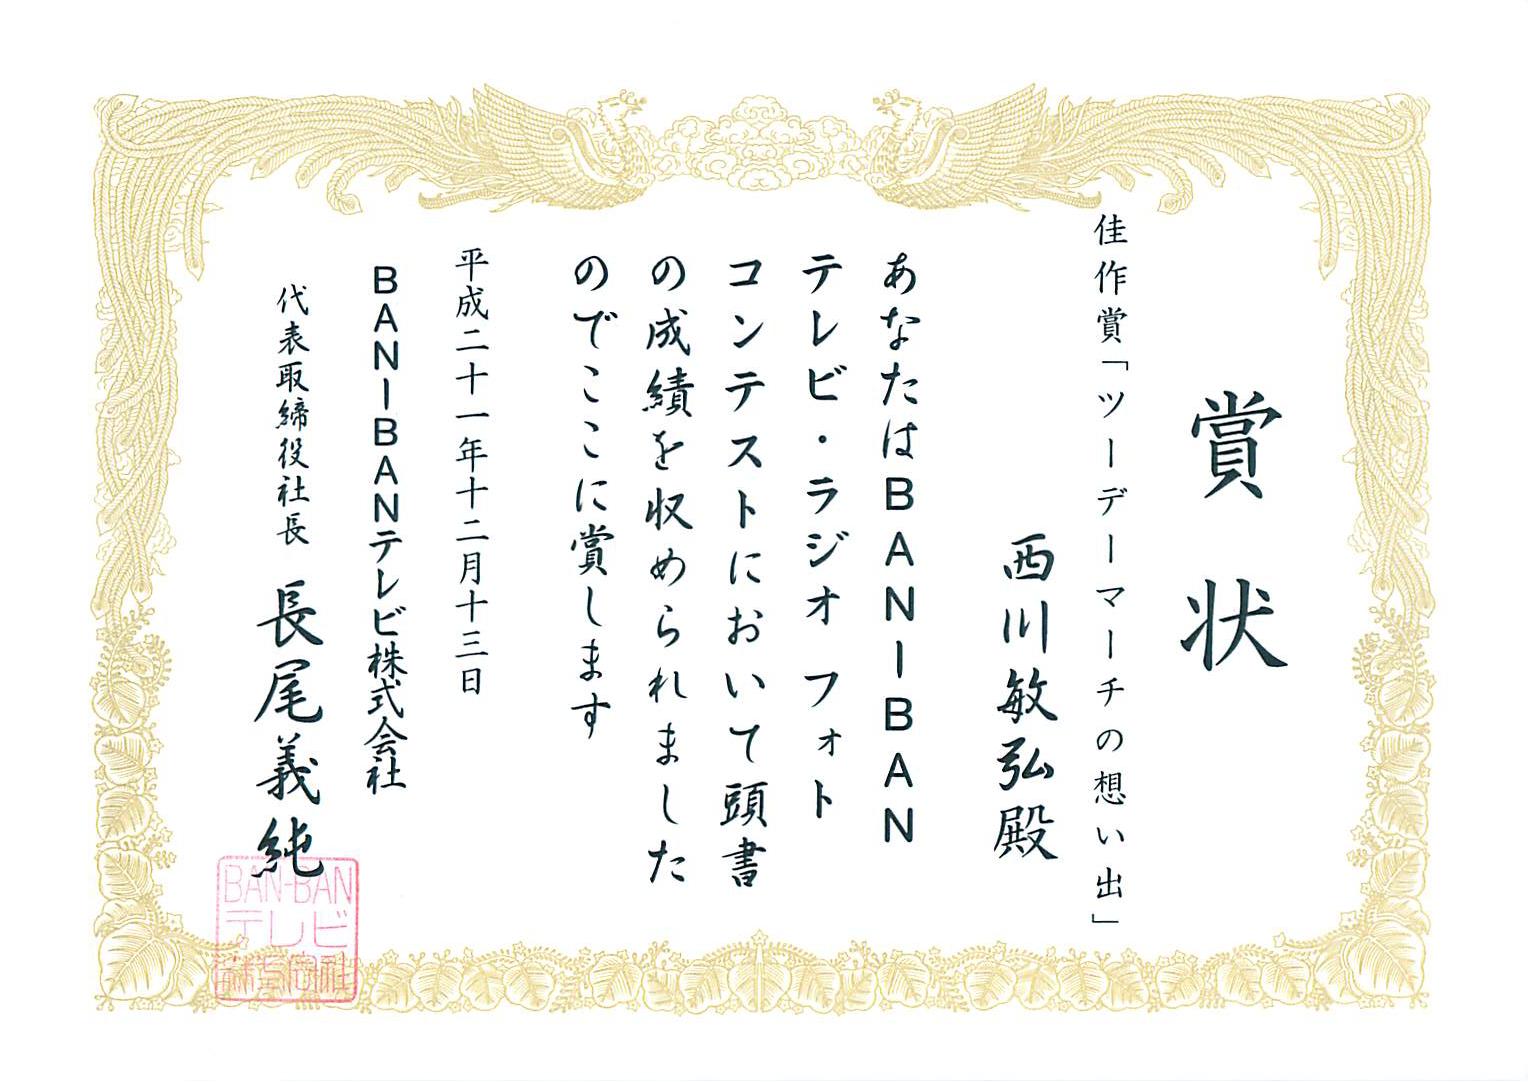 賞状
佳作賞「ツーデーマーチの想い出」
西川敏弘殿
あなたはBAN-BAN
テレビ・ラジオ フォト
コンテストにおいて頭書
の成績を収められました
のでここに賞します
平成二十一年十二月十三日
BAN-BANテレビ株式会社
代表取締役社長 長尾義純
BAN-BAN
テレビ
株式会社